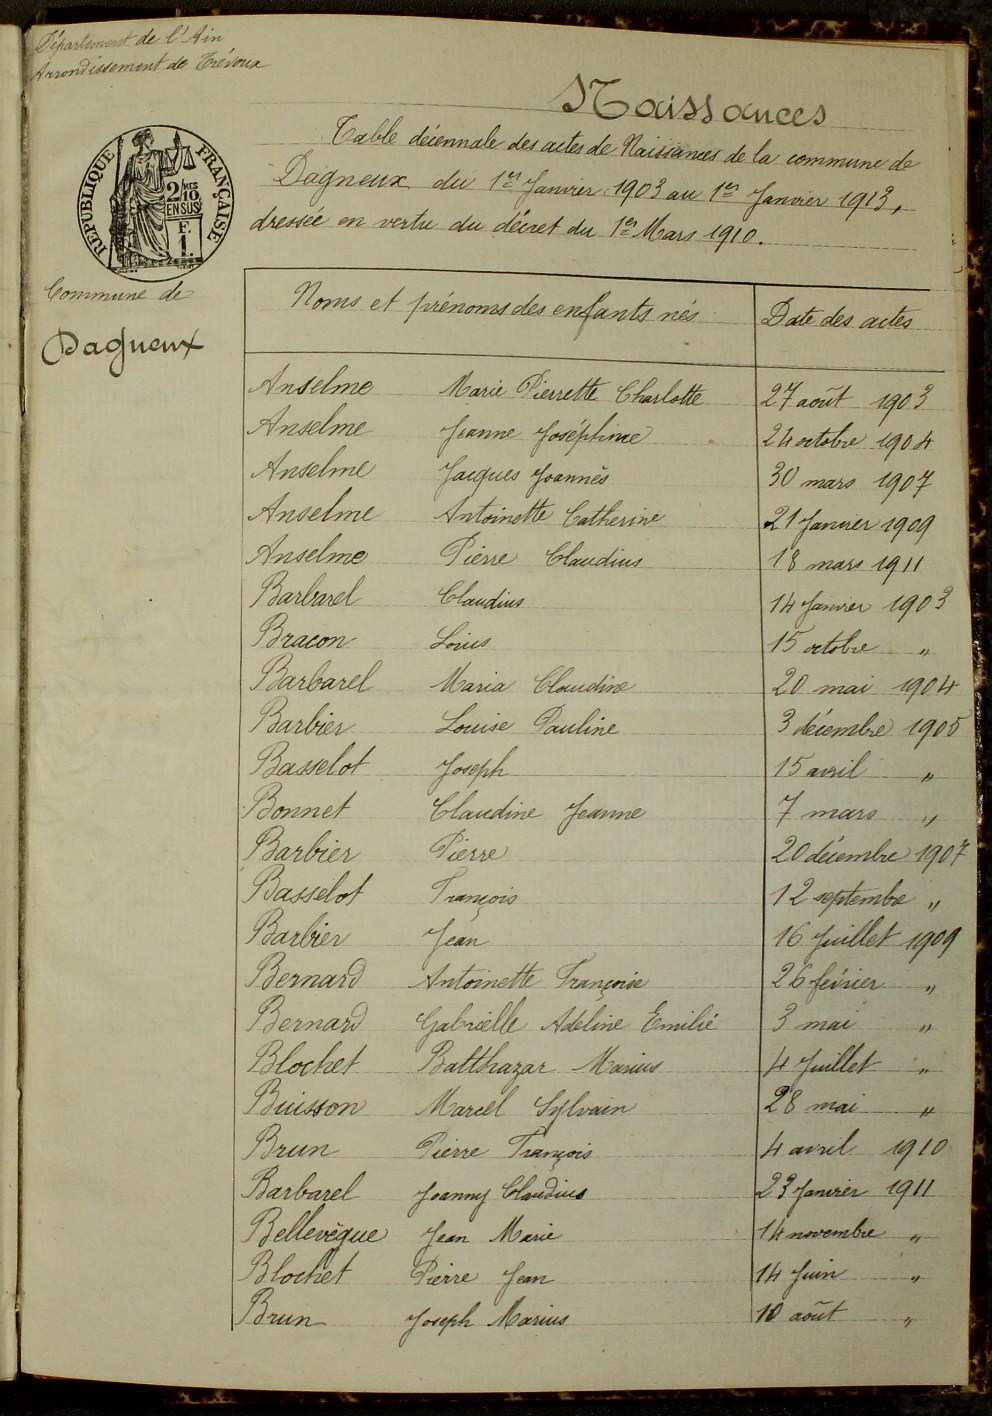 Département de l'Ain
Arrondissement de Trévoux
Naissances
Table décennale des actes de Naissances de la commune de
Dagneux du 1er Janvier 1903 au 1er Janvier 1913,
dressée en vertu du décret du 1er Mars 1910.
RÉPUBLIQUE FRANÇAISE
2/10 MES
EN SUS
F.
1.
Commune de
Dagneux
Noms et prénoms des enfants nés Date des actes
Anselme Marie Pierrette Charlotte 27 août 1903
Anselme Jeanne Joséphine 24 octobre 1904
Anselme Jacques Joannès 30 mars 1907
Anselme Antoinette Catherine 21 Janvier 1909
Anselme Pierre Claudius 18 mars 1911
Barbarel Claudius 14 Janvier 1903
Bracon Louis 15 octobre "
Barbarel Maria Claudine 20 mai 1904
Barbier Louise Pauline 3 décembre 1905
Basselot Joseph 15 avril "
Bonnet Claudine Jeanne 7 mars "
Barbier Pierre 20 décembre 1907
Basselot François 12 septembre "
Barbier Jean 16 Juillet 1909
Bernard Antoinette Françoise 26 février "
Bernard Gabrielle Adeline Emilie 3 mai "
Blochet Balthazar Marius 4 Juillet "
Buisson Marcel Sylvain 28 mai "
Brun Pierre François 4 avril 1910
Barbarel Joanny Claudius 23 Janvier 1911
Bellevègue Jean Marie 14 novembre "
Blochet Pierre Jean 14 Juin "
Brun Joseph Marius 10 août "